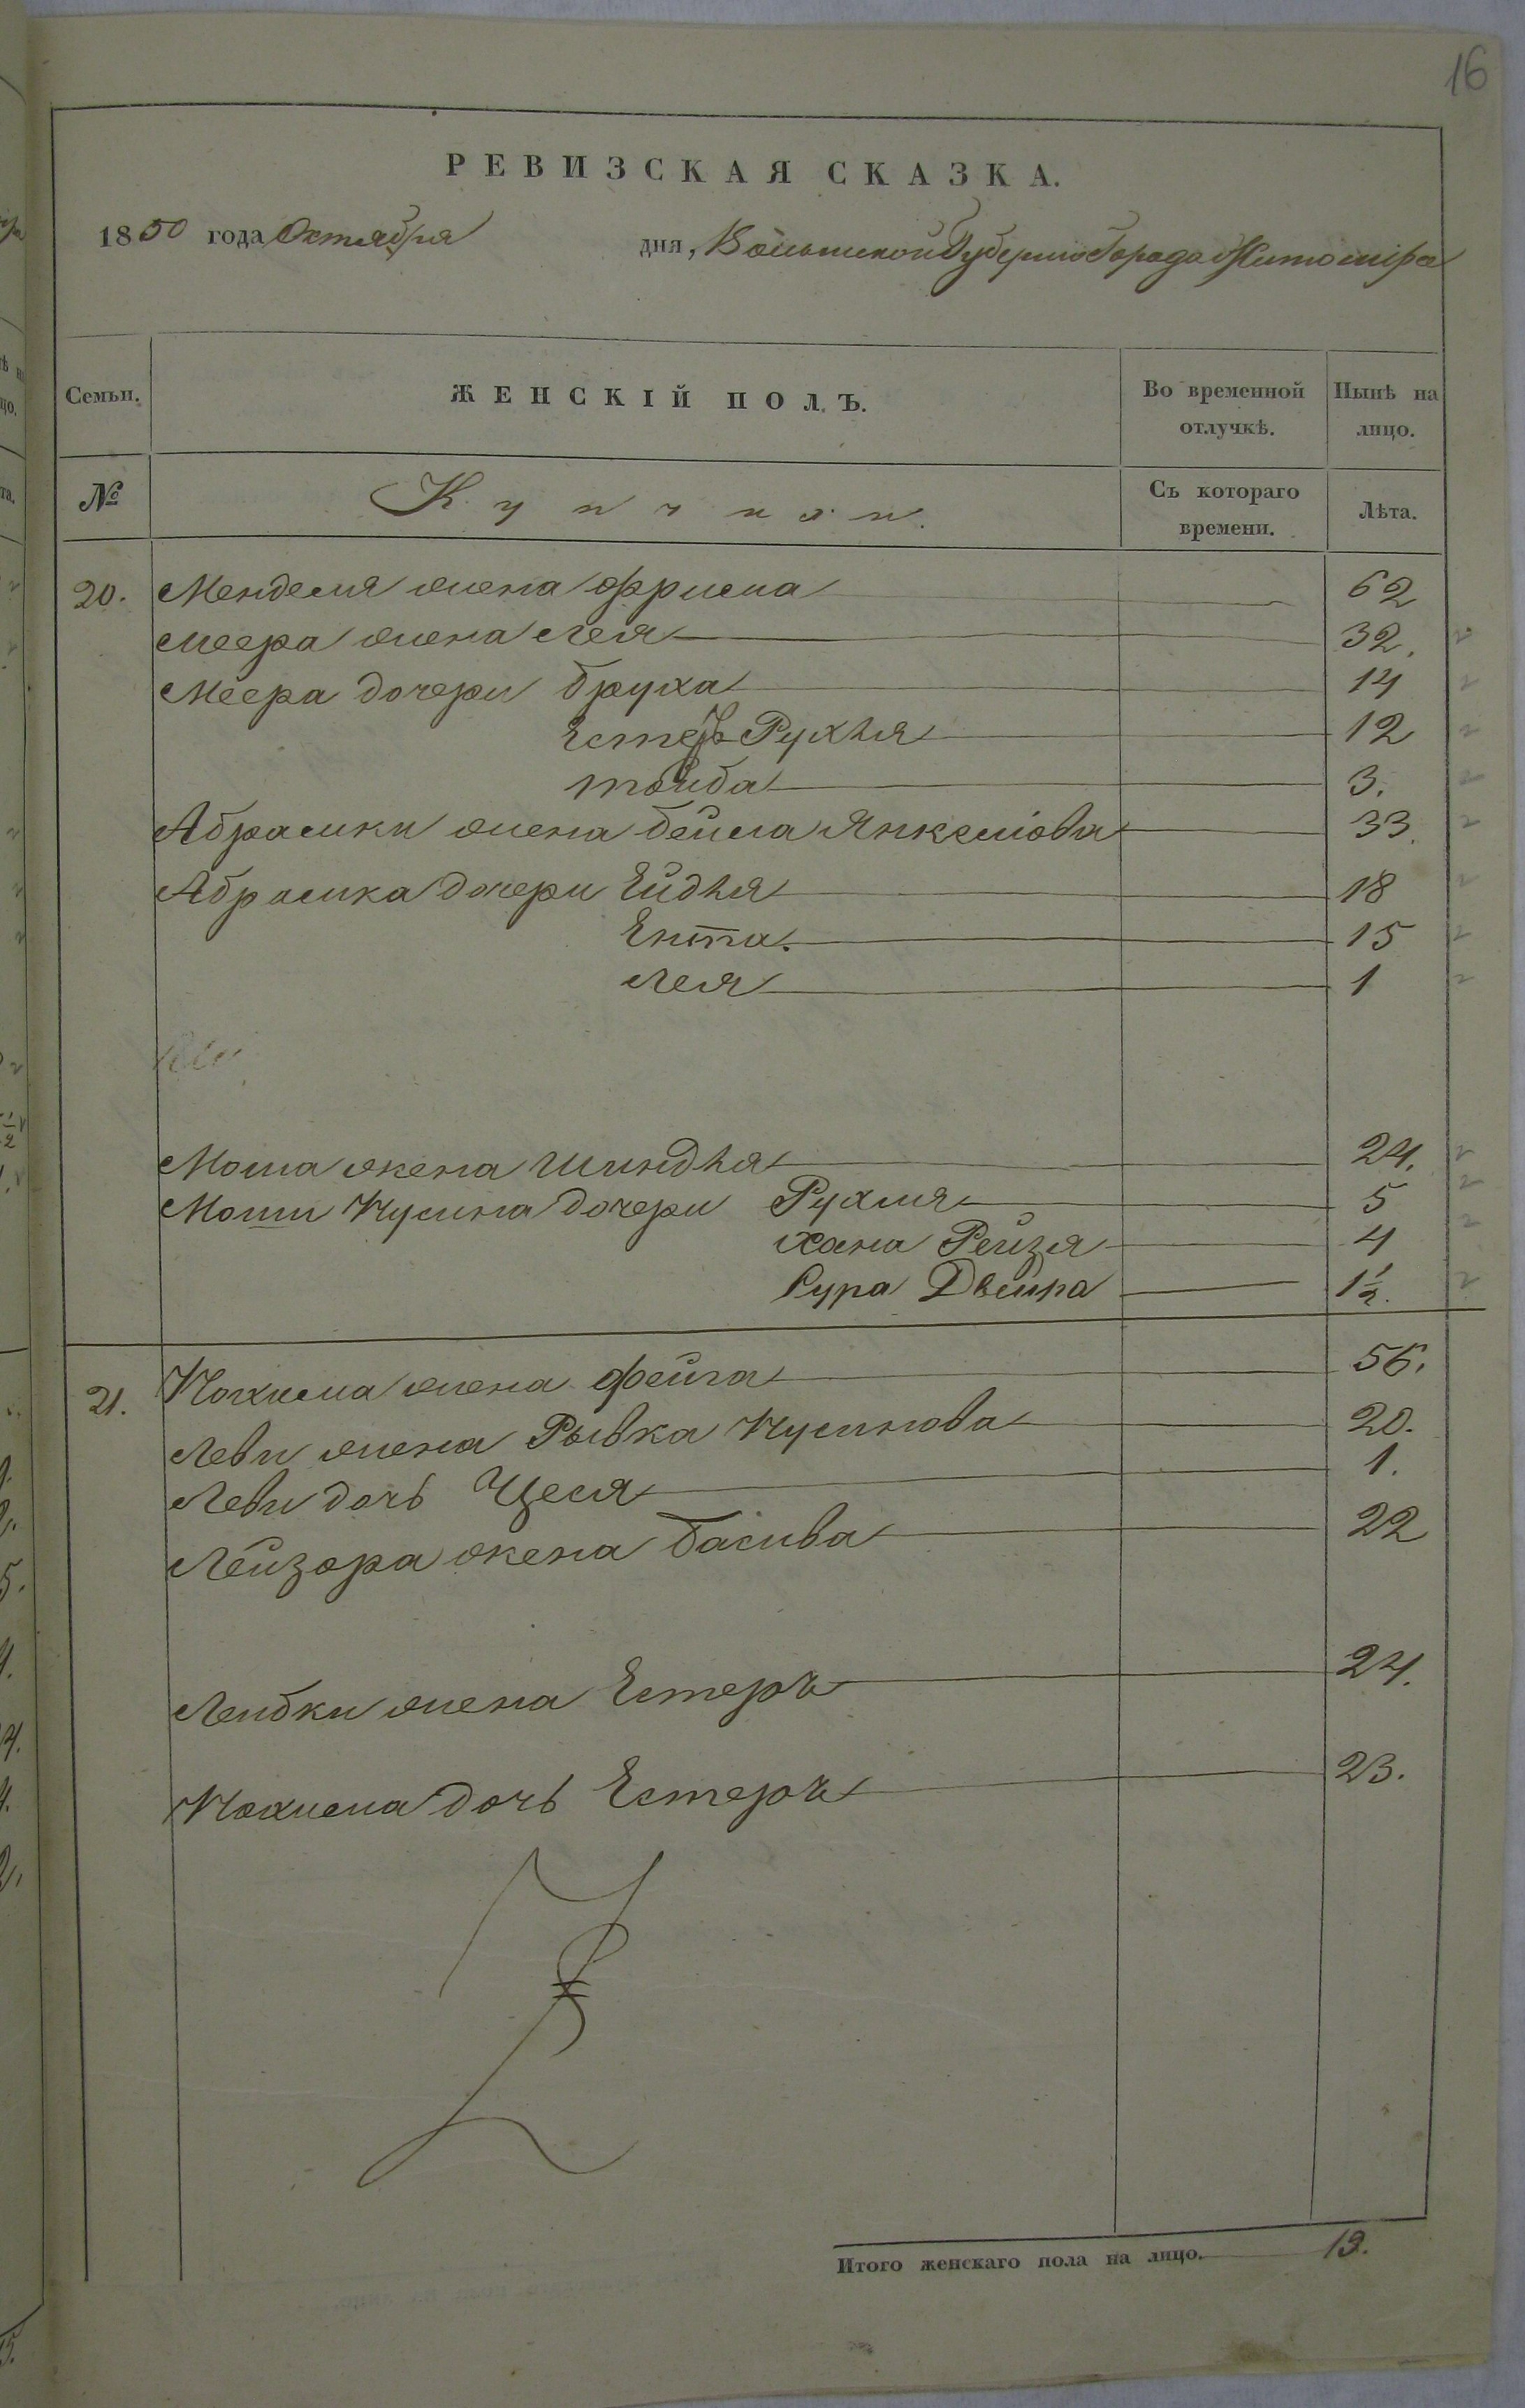 16
РЕВИЗСКАЯ СКАЗКА.
1850 года Октября дня, Волынской Губернии Города Житомира
Семьи. ЖЕНСКІЙ ПОЛЪ. Во временной отлучкѣ. Нынѣ на лицо.
№ Съ котораго времени. Лѣта.
20. Менделя жена Фрима 62
Меера жена Лея 32.
Меера дочери Бруха 14
Естеръ Рухля 12
Тойба 3.
Абрамки жена Бейла Янкелiова 33.
Абрамка дочери Ейдля 18
Ента. 15
Лея 1
Мошка жена Шиндля 24.
Мошки Нусина дочери Рухля 5
Хана Рейзя 4
Сура Двейра 1½.
21. Нохима жена Фейга 56.
Леви жена Рывка Нусинова 20.
Леви дочь Цеся 1.
Лейзора жена Басива 22
Лейбки жена Естеръ 24.
Нохима дочь Естеръ 23.
Итого женскаго пола на лицо. 19.